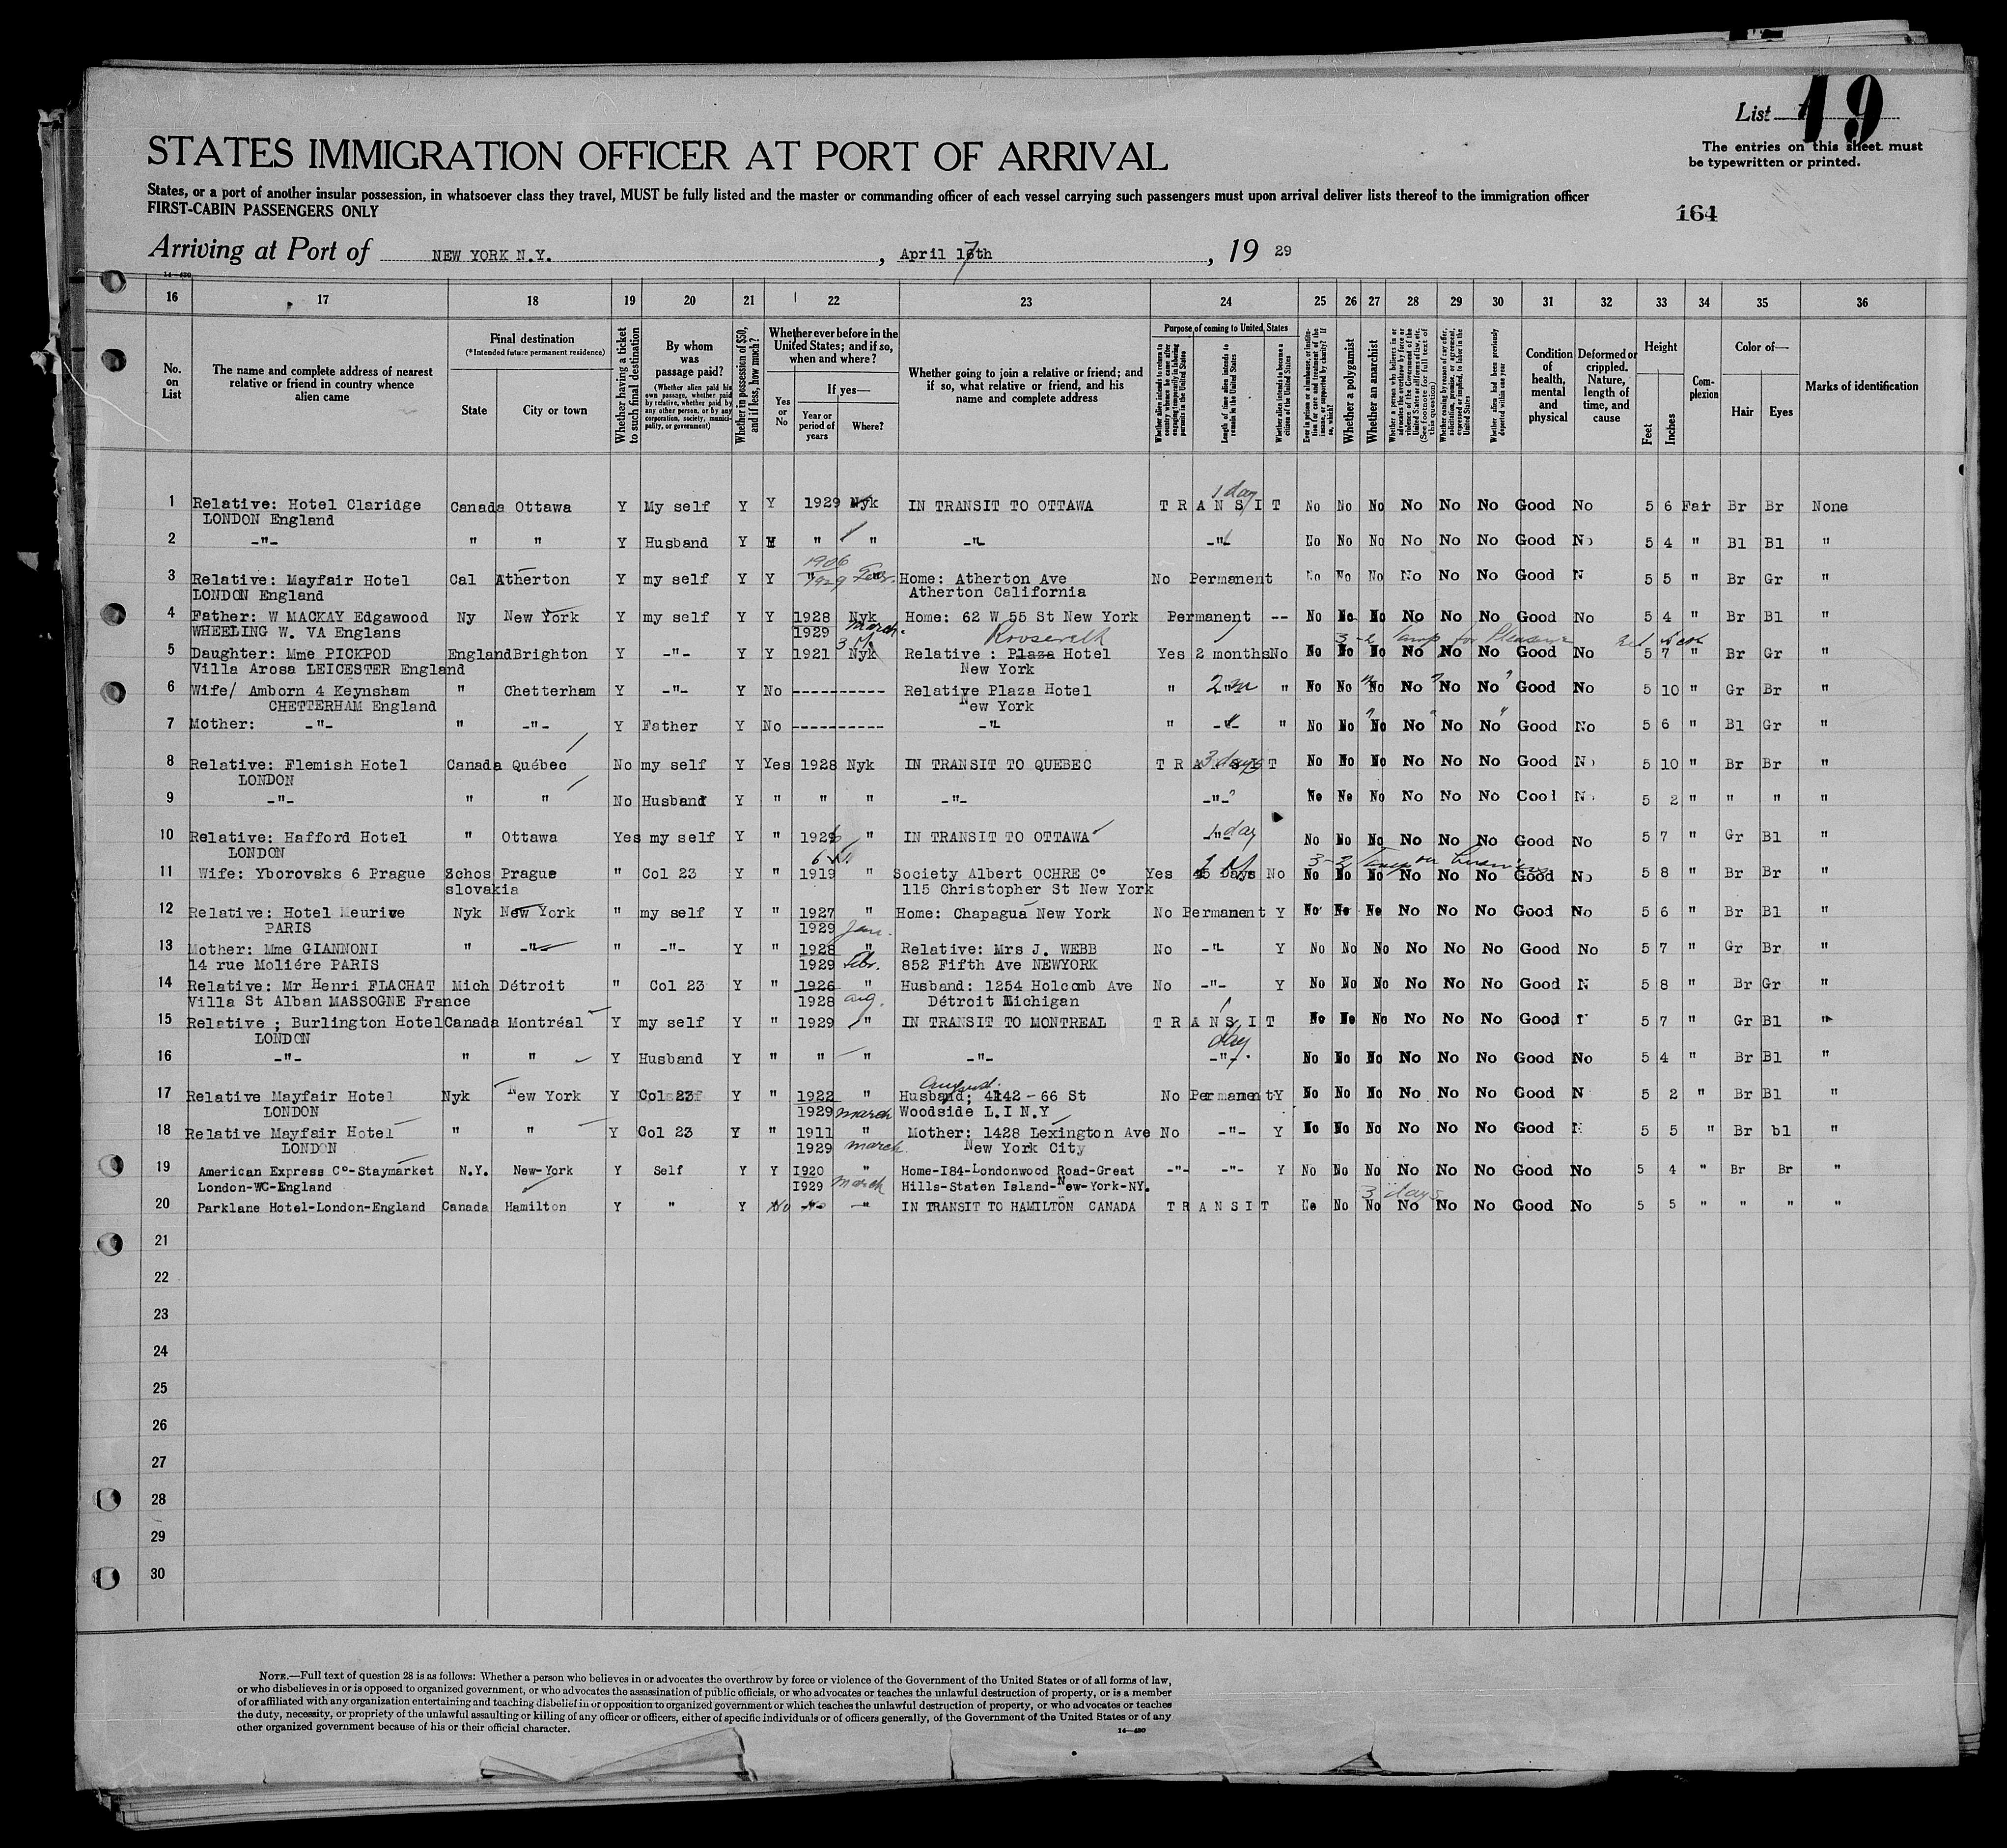 List 19
The entries on this sheet must
be typewritten or printed.
STATES IMMIGRATION OFFICER AT PORT OF ARRIVAL
States, or a port of another insular possession, in whatsoever class they travel, MUST be fully listed and the master or commanding officer of each vessel carrying such passengers must upon arrival deliver lists thereof to the immigration officer
FIRST-CABIN PASSENGERS ONLY
164
Arriving at Port of NEW YORK N.Y. , April 17th , 19 29
14-430
16 17 18 19 20 21 22 23 24 25 26 27 28 29 30 31 32 33 34 35 36
No. on List
The name and complete address of nearest relative or friend in country whence alien came
Final destination
(*Intended future permanent residence)
State
City or town
Whether having a ticket to such final destination
By whom was passage paid?
(Whether alien paid his own passage, whether paid by relative, whether paid by any other person, or by any corporation, society, municipality, or government)
Whether in possession of $50, and if less, how much?
Whether ever before in the United States; and if so, when and where?
Yes or No
If yes—
Year or period of years
Where?
Whether going to join a relative or friend; and if so, what relative or friend, and his name and complete address
Purpose of coming to United States
Whether alien intends to return to country whence he came after engaging temporarily in laboring pursuits in the United States
Length of time alien intends to remain in the United States
Whether alien intends to become a citizen of the United States
Ever in prison or almshouse, or institution for care and treatment of the insane, or supported by charity? If so, which?
Whether a polygamist
Whether an anarchist
Whether a person who believes in or advocates the overthrow by force or violence of the Government of the United States or all forms of law, etc. (See footnote for full text of this question)
Whether coming by reason of any offer, solicitation, promise, or agreement, expressed or implied, to labor in the United States
Whether alien had been previously deported within one year
Condition of health, mental and physical
Deformed or crippled. Nature, length of time, and cause
Height
Feet
Inches
Complexion
Color of—
Hair
Eyes
Marks of identification
1 day
1 Relative: Hotel Claridge Canada Ottawa Y My self Y Y 1929 Nyk IN TRANSIT TO OTTAWA T R A N S I T No No No No No No Good No 5 6 Fair Br Br None
LONDON England
2 -"- " " Y Husband Y " " -"- -"- No No No No No No Good No 5 4 " Bl Bl "
1906
3 Relative: Mayfair Hotel Cal Atherton Y my self Y Y 1929 Home: Atherton Ave No Permanent No No No No No No Good N 5 5 " Br Gr "
LONDON England Atherton California
4 Father: W MACKAY Edgawood Ny New York Y my self Y Y 1928 Nyk Home: 62 W 55 St New York Permanent -- No No No No No No Good No 5 4 " Br Bl "
WHEELING W. VA Englans 1929 March Roosevelt 3-2 for Pleasure
5 Daughter: Mme PICKPOD England Brighton Y -"- Y Y 1921 Nyk Relative : Plaza Hotel Yes 2 months No No No No No No No Good No 5 7 " Br Gr "
Villa Arosa LEICESTER England New York
6 Wife/ Amborn 4 Keynsham " Chetterham Y -"- Y No ---------- Relative Plaza Hotel " 2 m " No No No No No No Good No 5 10 " Gr Br "
CHETTERHAM England New York
7 Mother: -"- " -"- Y Father Y No ---------- -"- " -"- " No No No No No No Good No 5 6 " Bl Gr "
8 Relative: Flemish Hotel Canada Québec No my self Y Yes 1928 Nyk IN TRANSIT TO QUEBEC T R A N S I T 3 days No No No No No No Good No 5 10 " Br Br "
LONDON
9 -"- " " No Husband Y " " " -"- -"- No No No No No No Good No 5 2 " " " "
10 Relative: Hafford Hotel " Ottawa Yes my self Y " 1929 " IN TRANSIT TO OTTAWA 1 day No No No No No No Good No 5 7 " Gr Bl "
LONDON
11 Wife: Yborovsks 6 Prague Schos Prague " Col 23 Y " 1919 " Society Albert OCHRE Co Yes Days No No No No No No No Good No 5 8 " Br Br "
slovakia 115 Christopher St New York
12 Relative: Hotel Meurice Nyk New York " my self Y " 1927 " Home: Chapagua New York No Permanent Y No No No No No No Good No 5 6 " Br Bl "
PARIS 1929 Jan.
13 Mother: Mme GIANNONI " -"- " -"- Y " 1928 " Relative: Mrs J. WEBB No -"- Y No No No No No No Good No 5 7 " Gr Br "
14 rue Moliére PARIS 1929 Febr. 852 Fifth Ave NEWYORK
14 Relative: Mr Henri FLACHAT Mich Détroit " Col 23 Y " 1926 " Husband: 1254 Holcomb Ave No -"- Y No No No No No No Good N 5 8 " Br Gr "
Villa St Alban MASSOGNE France 1928 aug. Détroit Michigan
15 Relative ; Burlington Hotel Canada Montréal Y my self Y " 1929 " IN TRANSIT TO MONTREAL T R A N S I T No No No No No No Good 5 7 " Gr Bl "
LONDON 1 day
16 -"- " " Y Husband Y " " " -"- -"- No No No No No No Good No 5 4 " Br Bl "
17 Relative Mayfair Hotel Nyk New York Y Col 23 Y " 1922 " Husband; 4142 - 66 St No Permanent Y No No No No No No Good N 5 2 " Br Bl "
LONDON 1929 march Woodside L.I N.Y
18 Relative Mayfair Hotel " " Y Col 23 Y " 1911 " Mother: 1428 Lexington Ave No -"- Y No No No No No No Good N 5 5 " Br bl "
LONDON 1929 march New York City
19 American Express Co-Staymarket N.Y. New-York Y Self Y Y I920 " Home-I84-Londonwood Road-Great -"- -"- Y No No No No No No Good No 5 4 " Br Br "
London-WC-England I929 march Hills-Staten Island-New-York-NY.
3 days
20 Parklane Hotel-London-England Canada Hamilton Y " Y No " IN TRANSIT TO HAMILTON CANADA T R A N S I T No No No No No No Good No 5 5 " " " "
21
22
23
24
25
26
27
28
29
30
NOTE.—Full text of question 28 is as follows: Whether a person who believes in or advocates the overthrow by force or violence of the Government of the United States or of all forms of law,
or who disbelieves in or is opposed to organized government, or who advocates the assassination of public officials, or who advocates or teaches the unlawful destruction of property, or is a member
of or affiliated with any organization entertaining and teaching disbelief in or opposition to organized government or which teaches the unlawful destruction of property, or who advocates or teaches
the duty, necessity, or propriety of the unlawful assaulting or killing of any officer or officers, either of specific individuals or of officers generally, of the Government of the United States or of any
other organized government because of his or their official character.
14-430